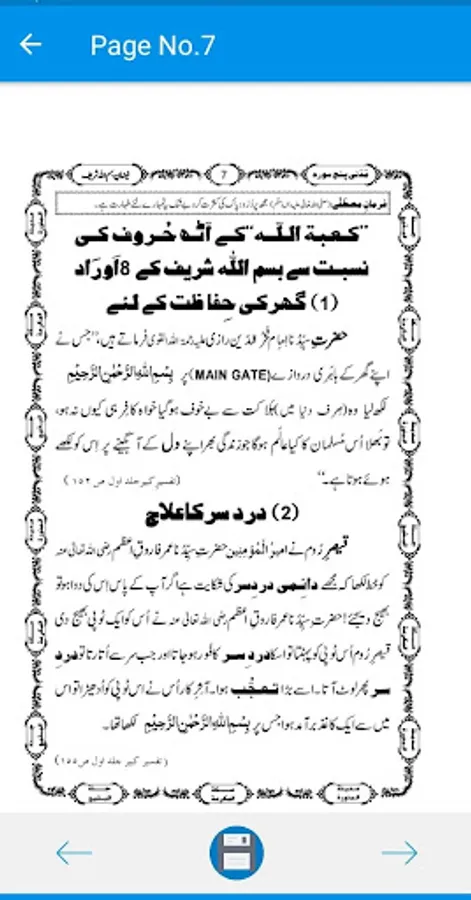 Page No.7
فیضانِ بسم اللہ شریف
7
مَدَنی پنج سورہ
فرمانِ مصطَفٰے (صلی اللہ تعالیٰ علیہ واٰلہٖ وسلم) مجھ پر دُرُودِ پاک کی کثرت کرو بے شک یہ تمہارے لئے طہارت ہے۔
”کعبۃ اللّٰہ“ کے آٹھ حُروف کی
نسبت سے بسم اللّٰہ شریف کے 8 اَورَاد
(1) گھر کی حِفاظت کے لئے
حضرتِ سیِّدُنا امام فخرُ الدّین رازی علیہ رحمۃ اللہ القوی فرماتے ہیں، ”جس نے
اپنے گھر کے باہَری دروازے (MAIN GATE) پر بِسْمِ اللہِ الرَّحْمٰنِ الرَّحِیْمِ
لکھ لیا وہ (صرف دنیا میں) ہلاکت سے بے خوف ہو گیا خواہ کافِر ہی کیوں نہ ہو،
تو بھلا اُس مُسلمان کا کیا عالَم ہوگا جو زندگی بھر اپنے دل کے آبگینے پر اِس کو لکھے
ہوئے ہوتا ہے۔“
(تفسیر کبیر جلد اول ص ۱۵۲)
(2) دردِ سر کا علاج
قیصرِ رُوم نے امیرُ الْمُؤمِنین حضرتِ سیِّدُنا عمر فاروقِ اعظم رضی اللہ تعالیٰ عنہ
کو خط لکھا کہ مجھے دائمی دردِسر کی شکایت ہے اگر آپ کے پاس اِس کی دوا ہو تو
بھیج دیجئے! حضرتِ سیِّدُنا عمر فاروقِ اعظم رضی اللہ تعالیٰ عنہ نے اُس کو ایک ٹوپی بھیج دی
قیصرِ رُوم اُس ٹوپی کو پہنتا تو اسکا دردِ سر کافور ہو جاتا اور جب سر سے اُتارتا تو دردِ
سر پھر لوٹ آتا۔ اسے بڑا تعجُّب ہوا۔ آخِر کار اُس نے اس ٹوپی کو اُدھیڑا تو اس
میں سے ایک کاغذ برآمد ہوا جس پر بِسْمِ اللہِ الرَّحْمٰنِ الرَّحِیْمِ لکھا تھا۔
(تفسیر کبیر جلد اول ص ۱۵۵)